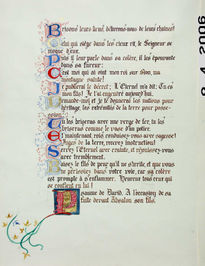 Brisons leurs liens, délivrons-nous de leurs chaînes!
Celui qui siège dans les cieux rit, le Seigneur se
moque d'eux.
Puis il leur parle dans sa colère, il les épouvante
dans sa fureur:
C'est moi qui ai oint mon roi sur Sion, ma
montagne sainte!
Je publierai le décret; L'Éternel m'a dit: Tu es
mon fils! Je t'ai engendré aujourd'hui.
Demande-moi et je te donnerai les nations pour
héritage, les extrémités de la terre pour posses-
sion;
Tu les briseras avec une verge de fer, tu les
briseras comme le vase d'un potier.
Et maintenant, rois, conduisez-vous avec sagesse!
Juges de la terre, recevez instruction!
Servez l'Éternel avec crainte, et réjouissez-vous
avec tremblement.
Baisez le fils de peur qu'il ne s'irrite, et que vous
ne périssiez dans votre voie, car sa colère
est prompte à s'enflammer. Heureux tous ceux qui
se confient en lui!
Psaume de David. À l'occasion de sa
fuite devant Absalon son fils.
2006